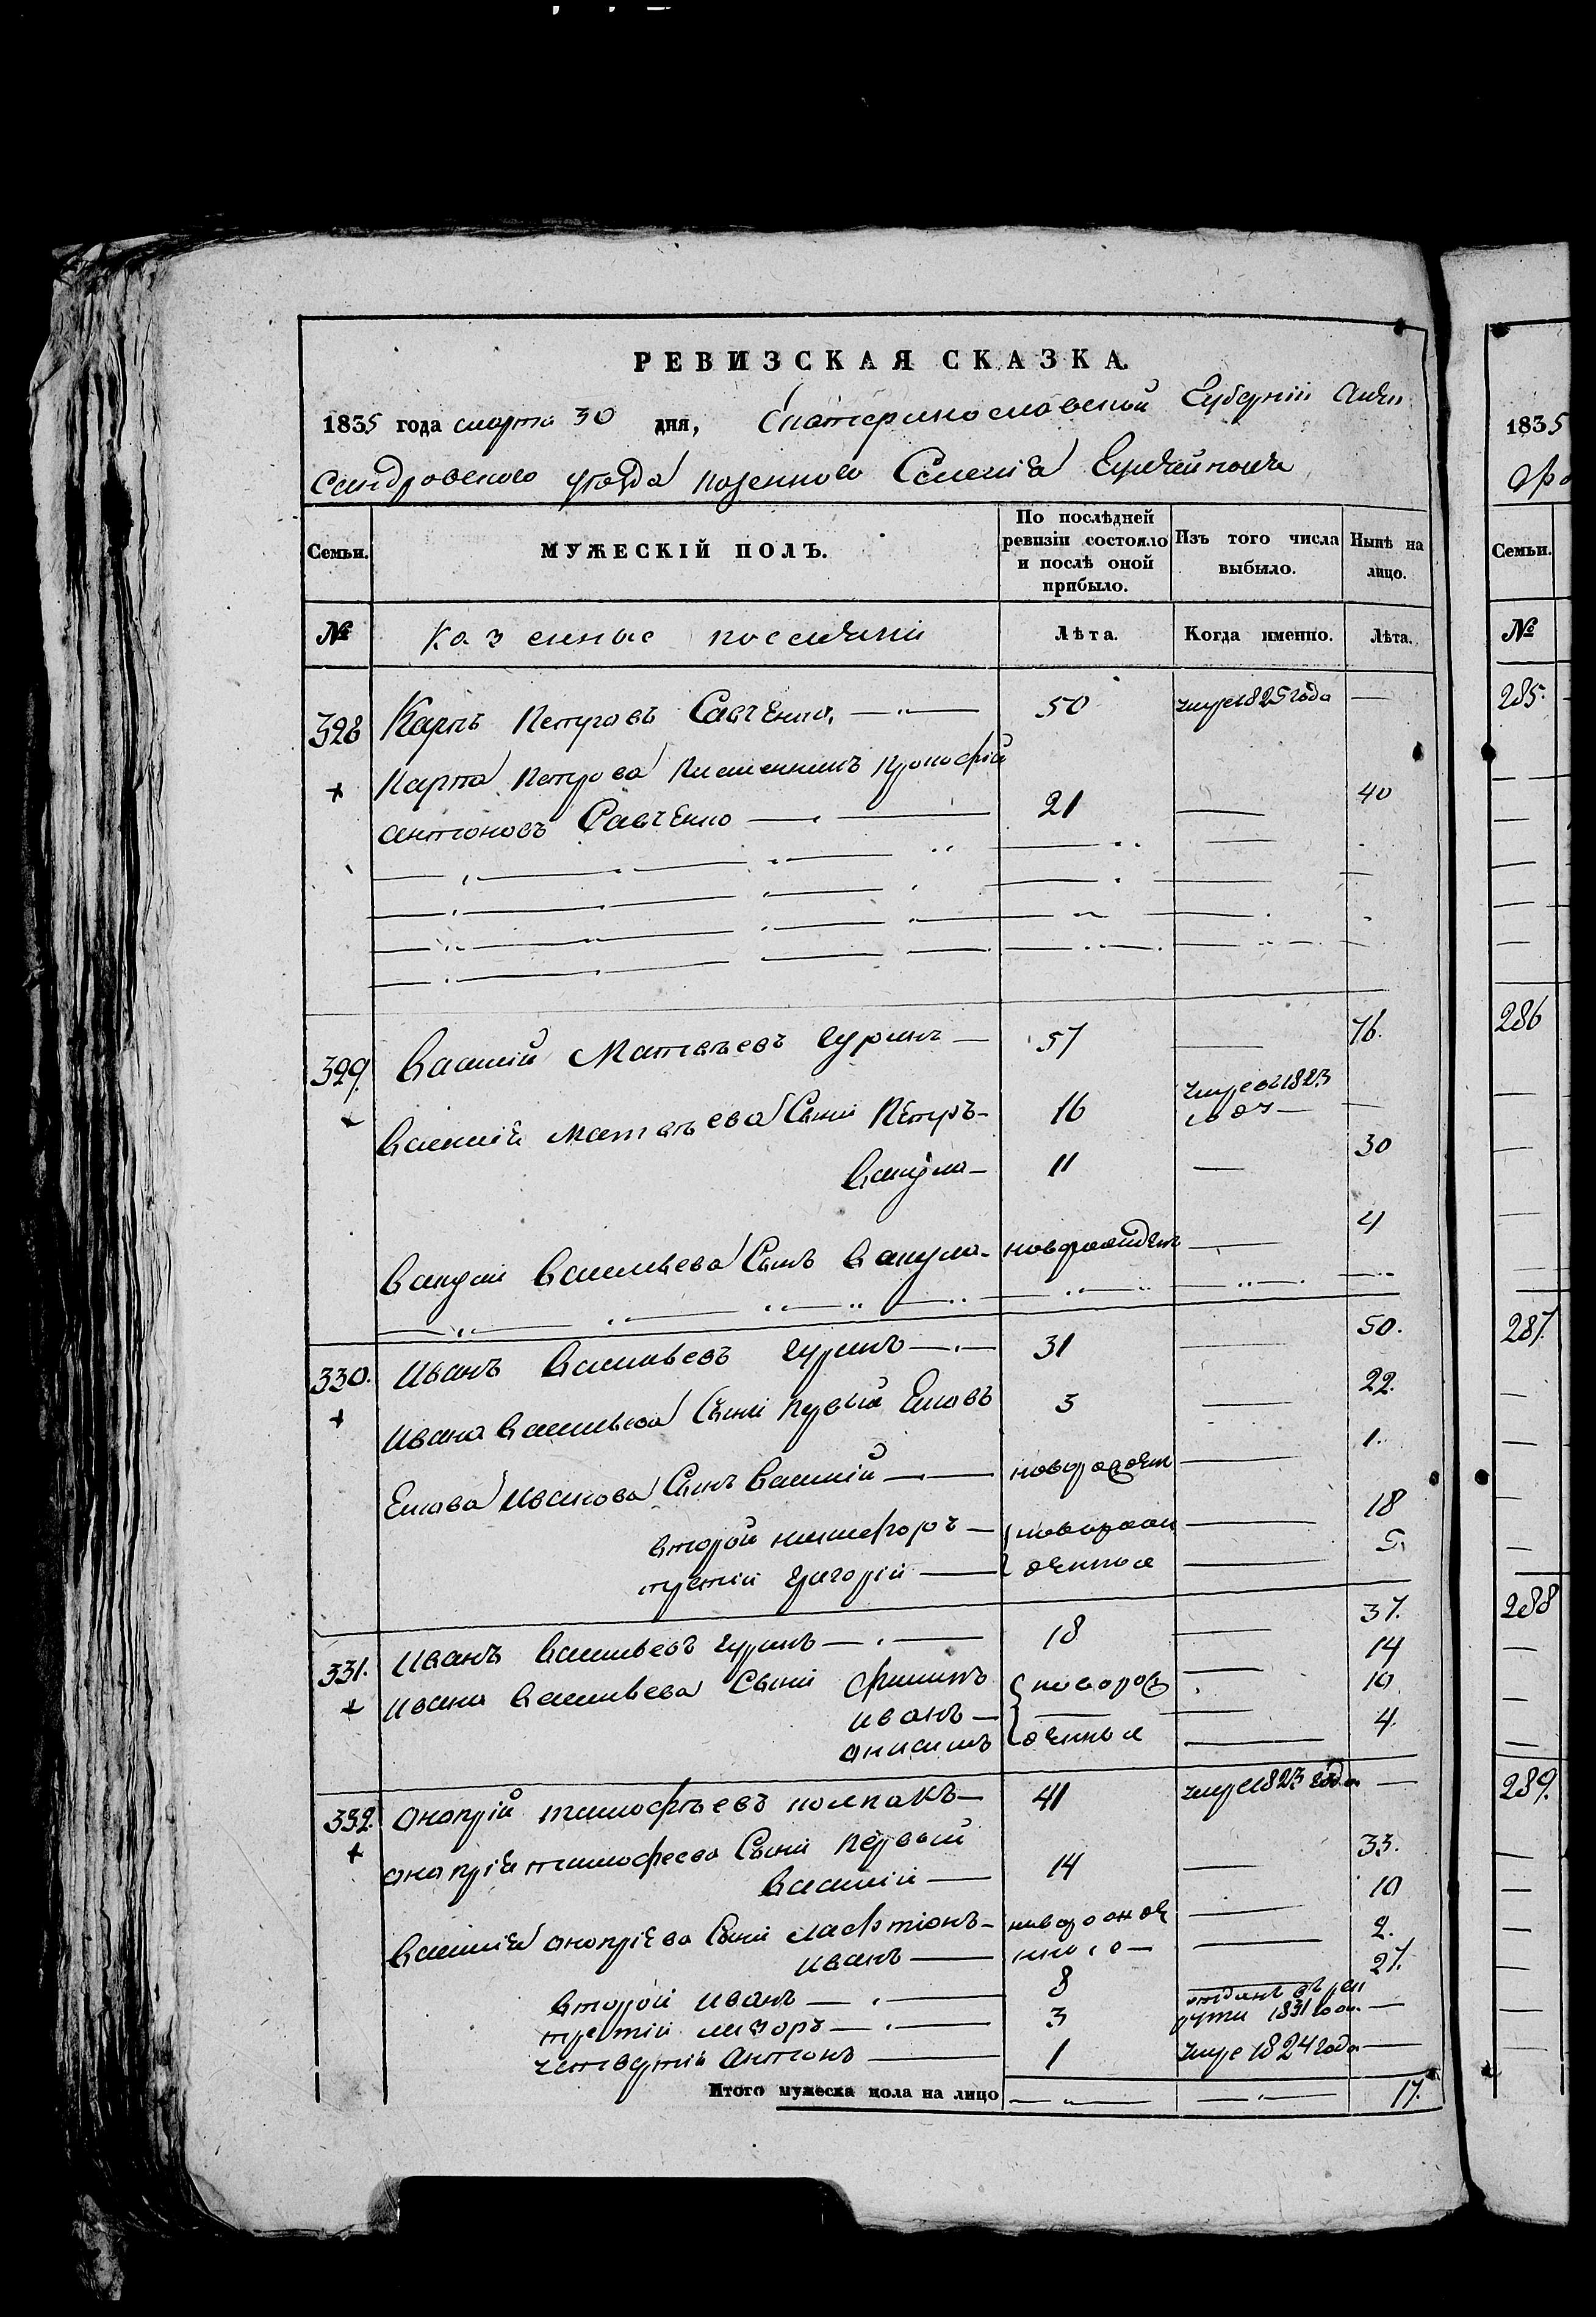 РЕВИЗСКАЯ СКАЗКА.
1835 года марта 30 дня, Екатеринославской Губерніи Алек
сандровского уезда казенного Селенія
Семьи. МУЖЕСКІЙ ПОЛЪ. По послѣдней ревизіи состояло и послѣ оной прибыло. Изъ того числа выбыло. Нынѣ на лицо.
№ Казенные поселяни Лѣта. Когда именно. Лѣта.
328 Карпъ Петровъ Савченко, 50 умре 1825 года —
Карпа Петрова племенникъ Прокофій
антоновъ Савченко 21 — 40
329. Василій Матвѣевъ Гуринъ — 57 — 76.
Василія Матвѣева Сыни Петръ — 16 умре въ 1823
году — —
Вакула — 11 — 30
Вакули Васильева Сынъ Вакула — новорожденъ — 4
330. Иванъ Васильевъ Гуринъ — 31 — 50.
Ивана Васильева Сыни первый Яковъ 3 — 22.
Якова Иванова Сынъ Василій — новорожден — 1.
второй никифоръ — новорож — 18
третій григорій — денные — 5.
331. Иванъ Васильевъ Гуринъ — 18 — 37.
Ивана Васильева Сыни филипъ новорож — 14
иванъ — — 10
анисимъ денные — 4.
332. Онопрій тимофѣевъ колпакъ — 41 умре 1823 года —
онопрія тимофеева Сыни первый
Василій — 14 — 33.
Василія онопріева Сыни — новорожде — 10
иванъ — нные — — 2.
второй иванъ — 8 27.
третій — 3 отданъ въ рек
руты 1831 года —
четвертій антонъ — 1 умре 1824 года —
Итого мужеска пола на лицо — — 17.
1835
Семьи.
№
285.
286
287.
288
289.